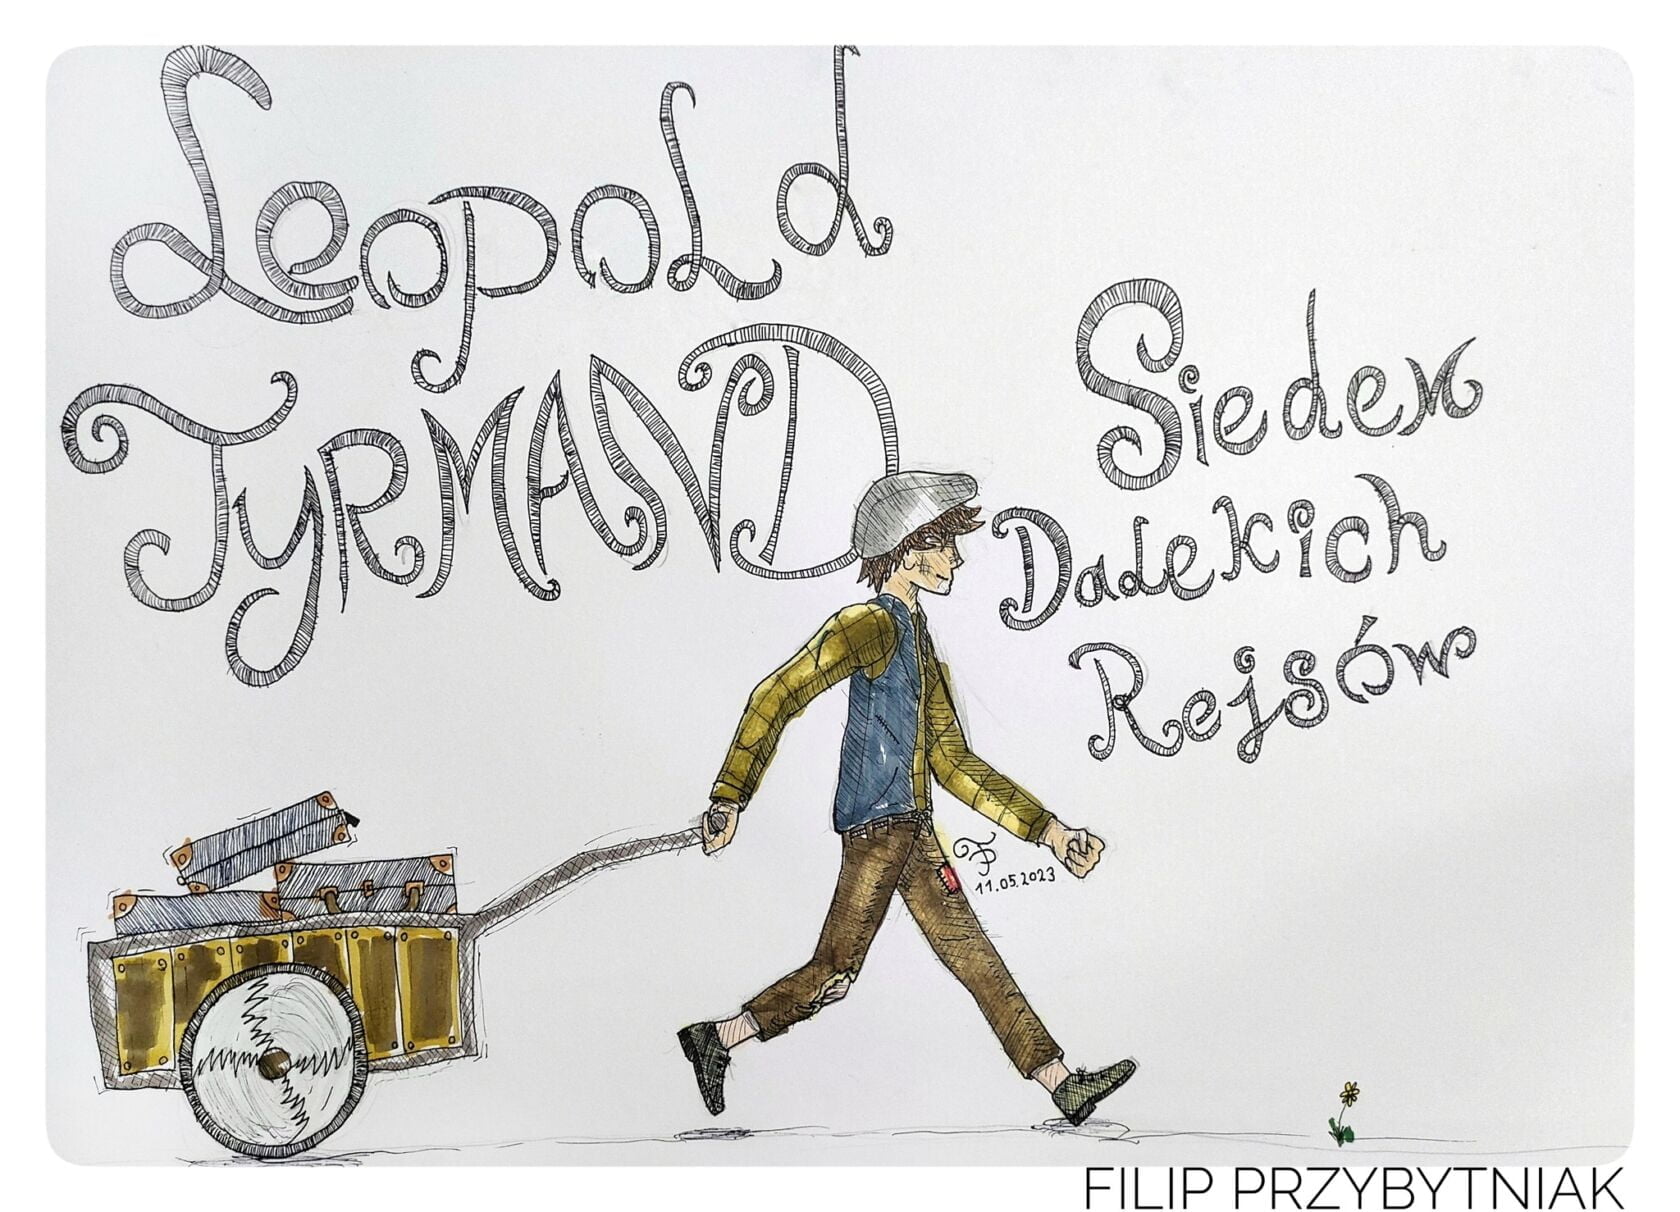 Leopold
TYRMAND
Siedem
Dalekich
Rejsów
11.05.2023
FILIP PRZYBYTNIAK